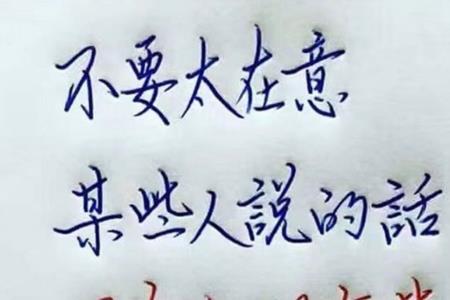 不要太在意
某些人說的話